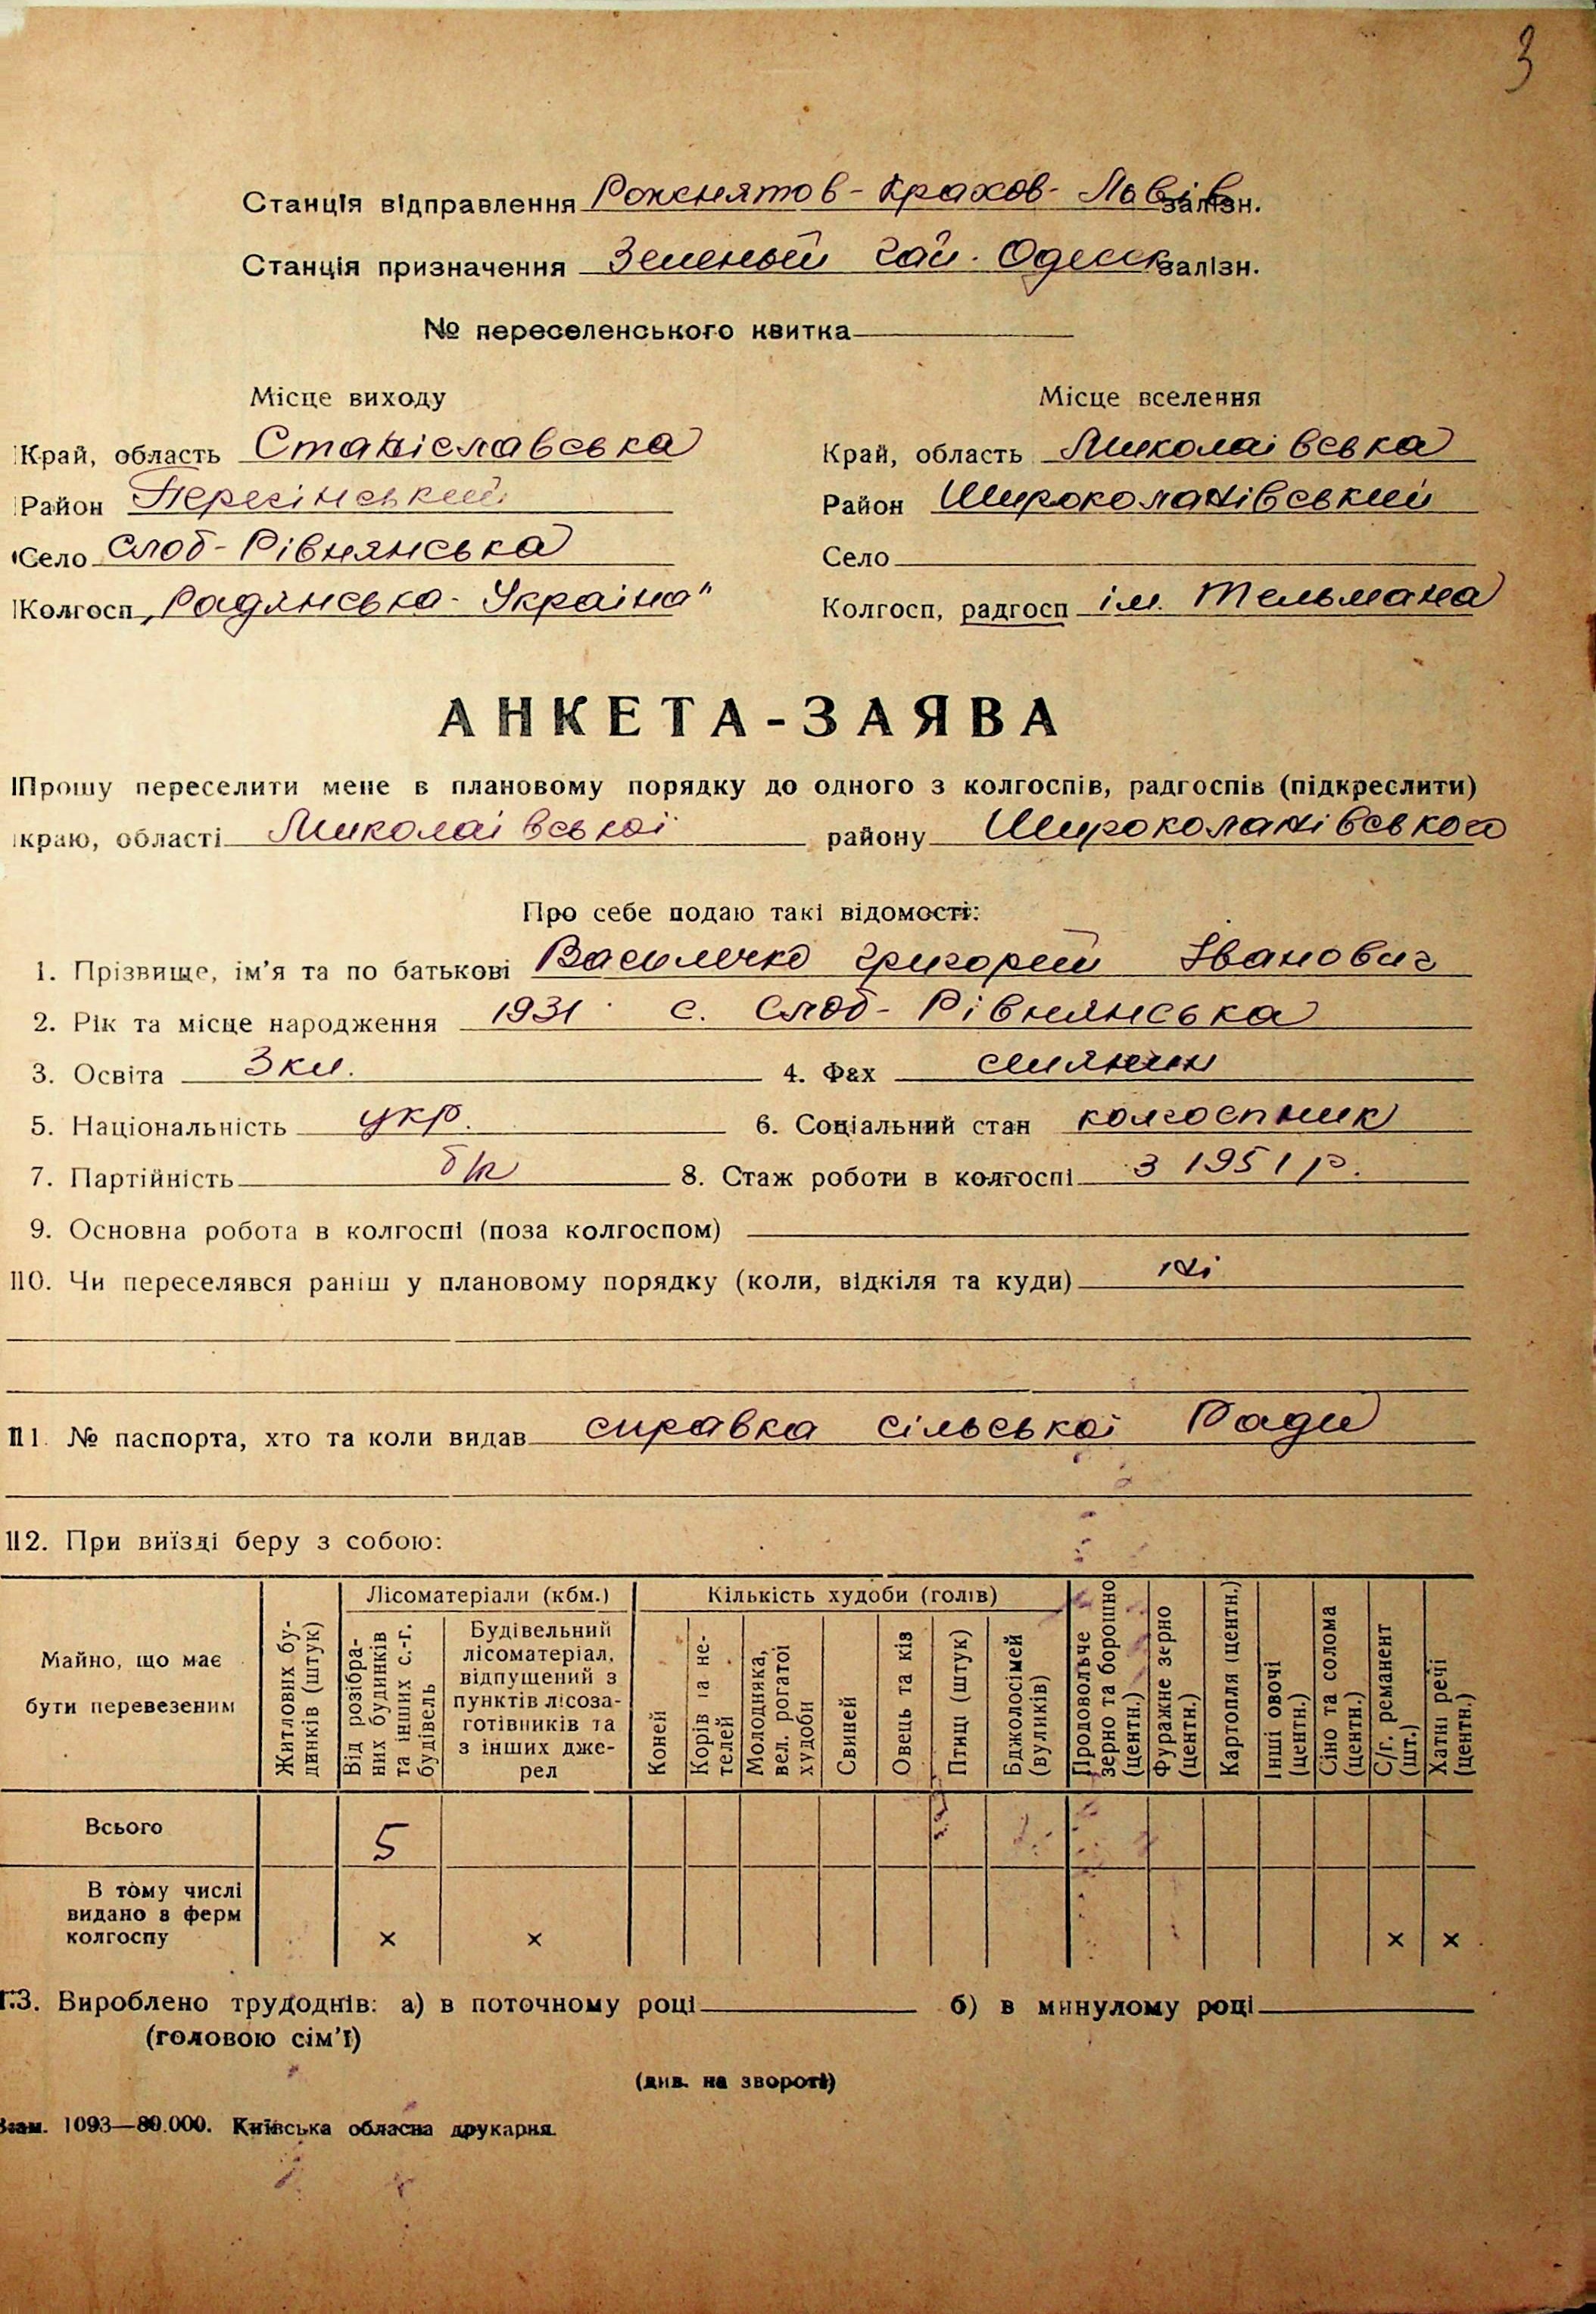 3
Станція відправлення Рожнятов - Крахов - Львів залізн.
Станція призначення Зеленый Гай. Одеск залізн.
№ переселенського квитка
Місце виходу Місце вселення
Край, область Станіславська Край, область Миколаівська
Район Перегінський Район Широколанівський
Село Слоб-Рівнянська Село
Колгосп „Радянська-Украіна" Колгосп, радгосп ім. Тельмана
АНКЕТА-ЗАЯВА
Прошу переселити мене в плановому порядку до одного з колгоспів, радгоспів (підкреслити)
краю, області Миколаівськоі району Широколанівського
Про себе подаю такі відомості:
1. Прізвище, ім'я та по батькові Василечко Григорий Іванович
2. Рік та місце народження 1931 с. Слоб-Рівнянська
3. Освіта 3 кл. 4. Фах
5. Національність укр. 6. Соціальний стан колгоспник
7. Партійність б/п 8. Стаж роботи в колгоспі з 1951 р.
9. Основна робота в колгоспі (поза колгоспом)
10. Чи переселявся раніш у плановому порядку (коли, відкіля та куди) ні
11. № паспорта, хто та коли видав справка сільськоі Ради
12. При виїзді беру з собою:
Майно, що має
бути перевезеним
Житлових бу-
динків (штук)
Лісоматеріали (кбм.)
Від розібра-
них будинків
та інших с.-г.
будівель
Будівельний
лісоматеріал,
відпущений з
пунктів лісоза-
готівників та
з інших дже-
рел
Кількість худоби (голів)
Коней
Корів та не-
телей
Молодняка,
вел. рогатої
худоби
Свиней
Овець та кіз
Птиці (штук)
Бджолосімей
(вуликів)
Продовольче
зерно та борошно
(центн.)
Фуражне зерно
(центн.)
Картопля (центн.)
Інші овочі
(центн.)
Сіно та солома
(центн.)
С/г. реманент
(шт.)
Хатні речі
(центн.)
Всього 5
В тому числі
видано з ферм
колгоспу × × × ×
13. Вироблено трудоднів: а) в поточному році б) в минулому році
(головою сім'ї)
(див. на звороті)
Зам. 1093—80.000. Київська обласна друкарня.